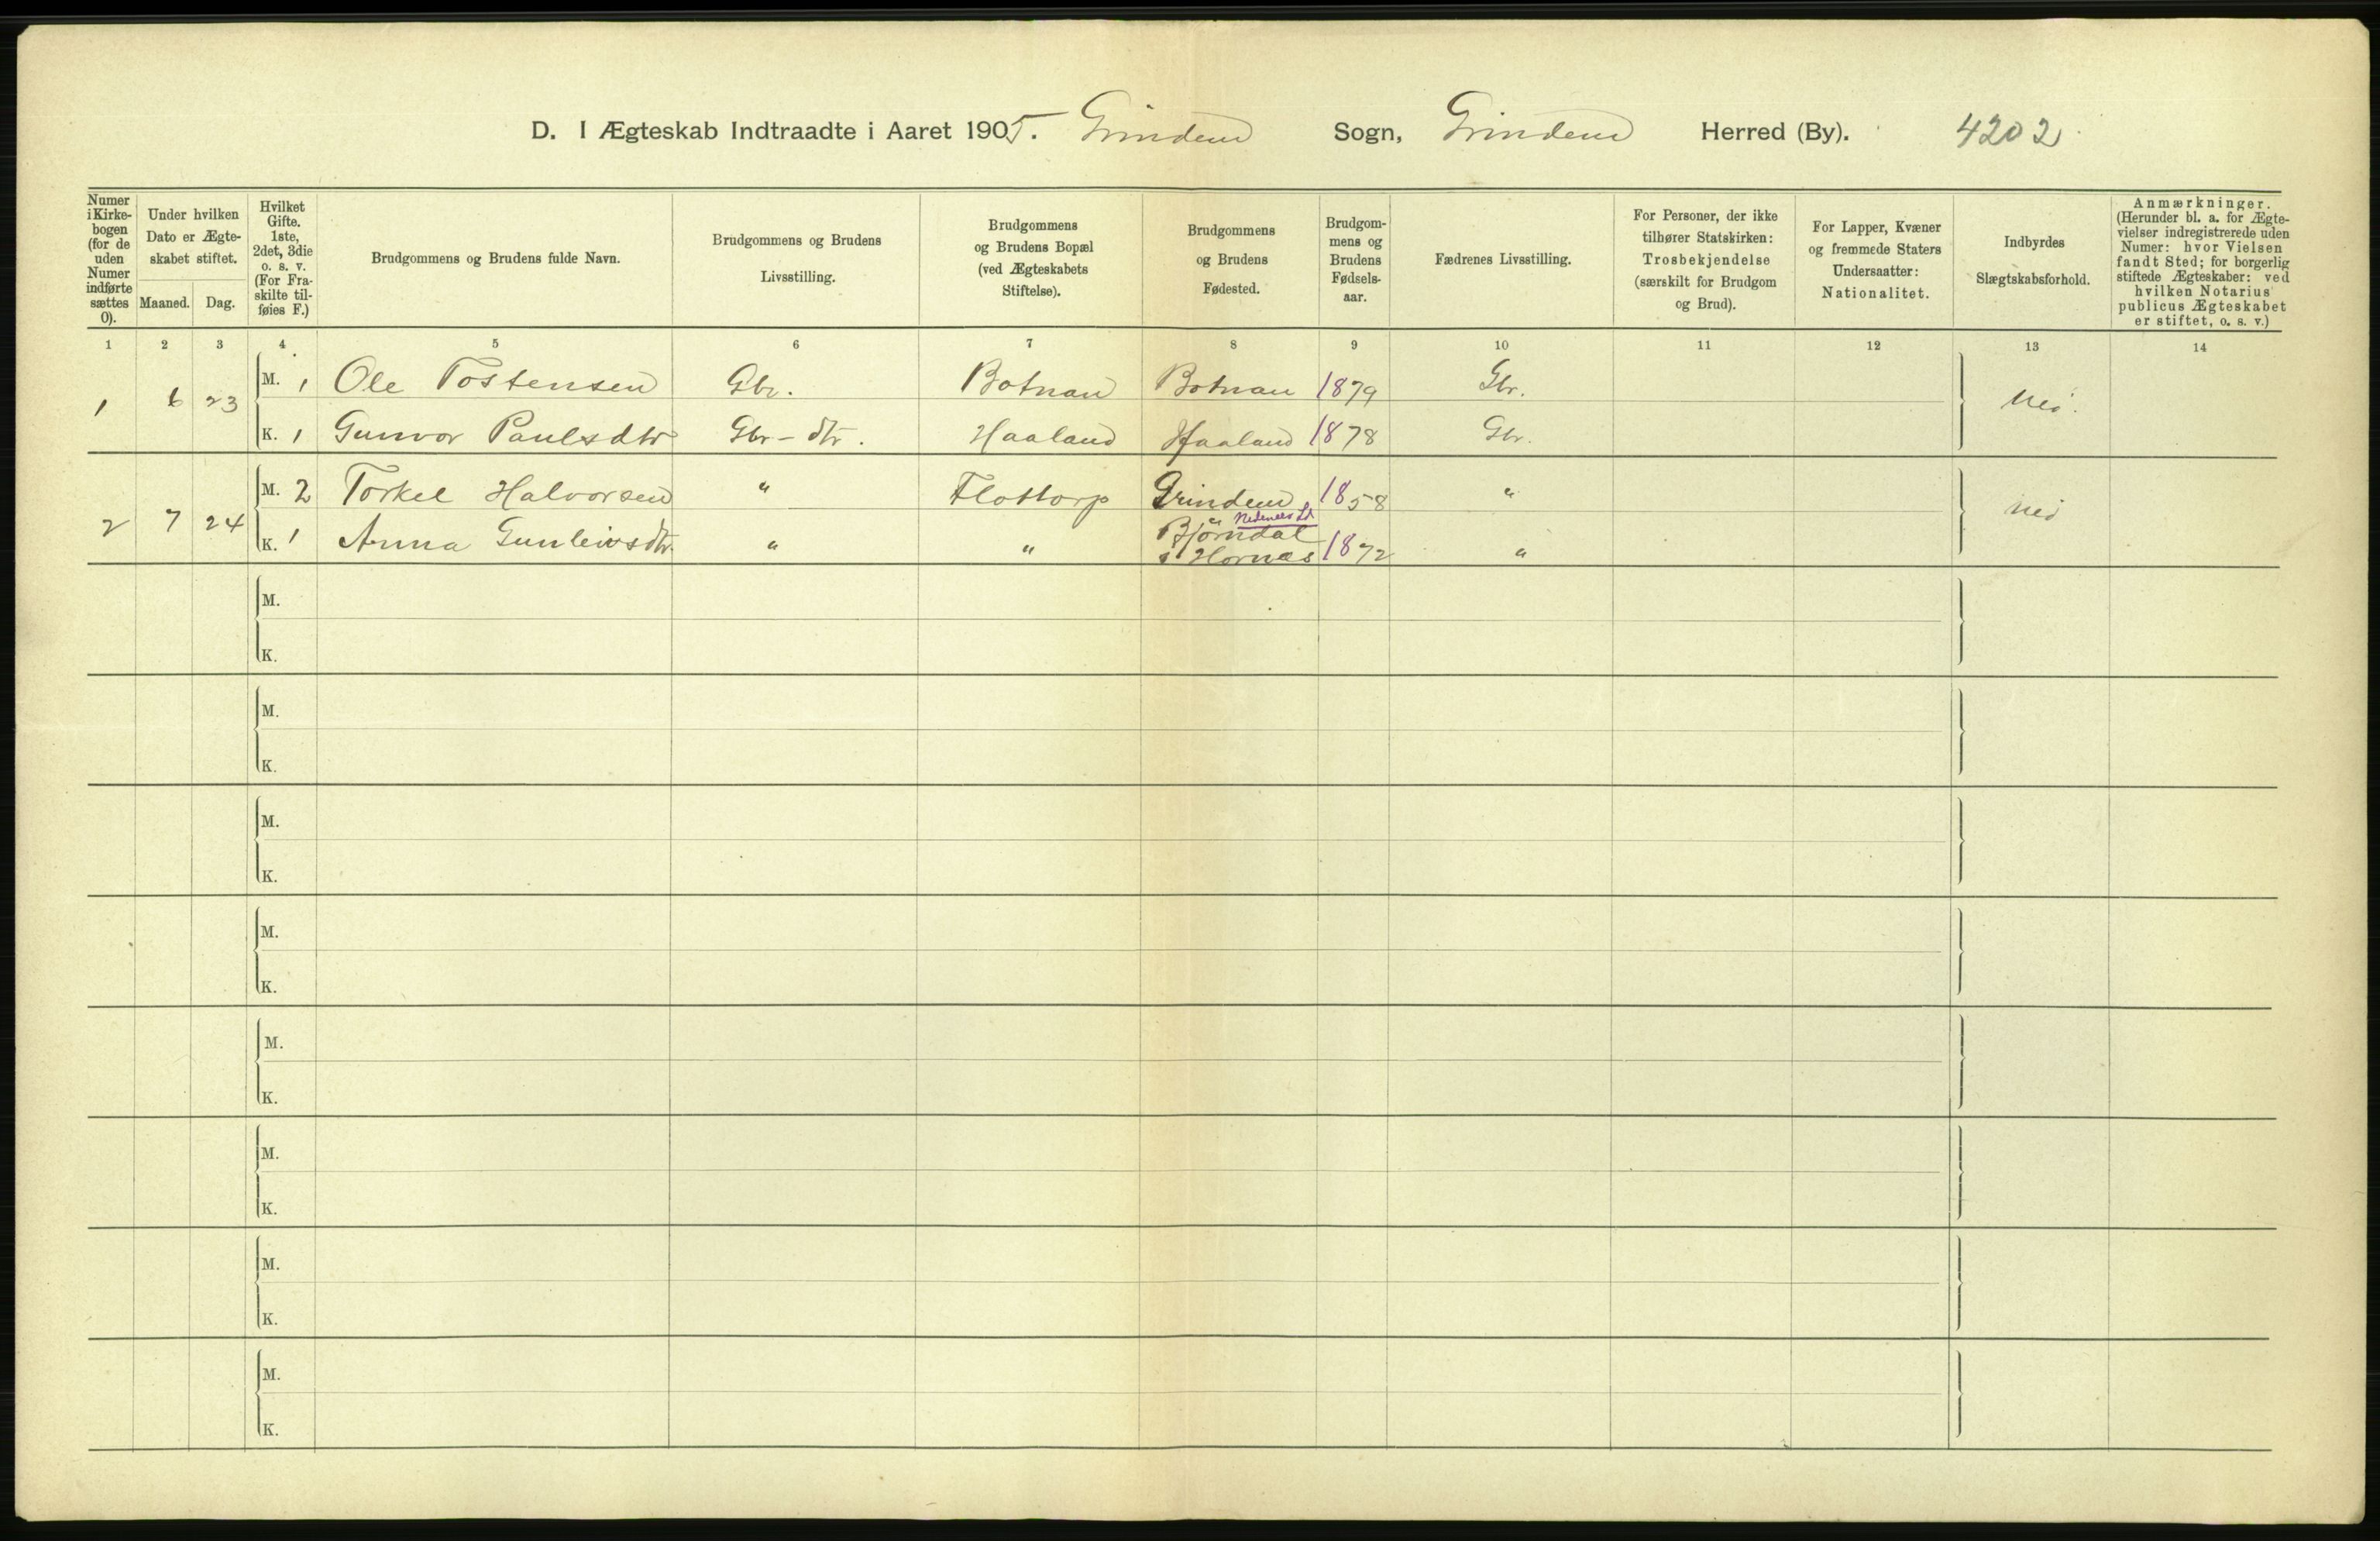 D. I Ægteskab Indtraadte i Aaret 1905. Grindem Sogn, Grindem Herred (By). 4202
Numer i Kirkebogen (for de uden Numer indførte sættes 0).
Under hvilken Dato er Ægteskabet stiftet.
Maaned. Dag.
Hvilket Gifte. 1ste, 2det, 3die o. s. v. (For Fraskilte tilføies F.)
Brudgommens og Brudens fulde Navn.
Brudgommens og Brudens Livsstilling.
Brudgommens og Brudens Bopæl (ved Ægteskabets Stiftelse).
Brudgommens og Brudens Fødested.
Brudgommens og Brudens Fødselsaar.
Fædrenes Livsstilling.
For Personer, der ikke tilhører Statskirken: Trosbekjendelse (særskilt for Brudgom og Brud).
For Lapper, Kvæner og fremmede Staters Undersaatter: Nationalitet.
Indbyrdes Slægtskabsforhold.
Anmærkninger. (Herunder bl. a. for Ægtevielser indregistrerede uden Numer: hvor Vielsen fandt Sted; for borgerlig stiftede Ægteskaber: ved hvilken Notarius publicus Ægteskabet er stiftet, o. s. v.)
1 2 3 4 5 6 7 8 9 10 11 12 13 14
1 6 23 M. 1 Ole Tostensen Gbr. Botnan Botnan 1879 Gbr. Nei.
K. 1 Gunvor Paulsdtr Gbr-dtr. Haaland Haaland 1878 Gbr.
2 7 24 M. 2 Torkel Halvorsen " Flottorp Grindem 1858 " Nei
K. 1 Anna Gunleivsdtr. " " Bjørndal Nedenes 1872 "
i Hornæs
M.
K.
M.
K.
M.
K.
M.
K.
M.
K.
M.
K.
M.
K.
M.
K.